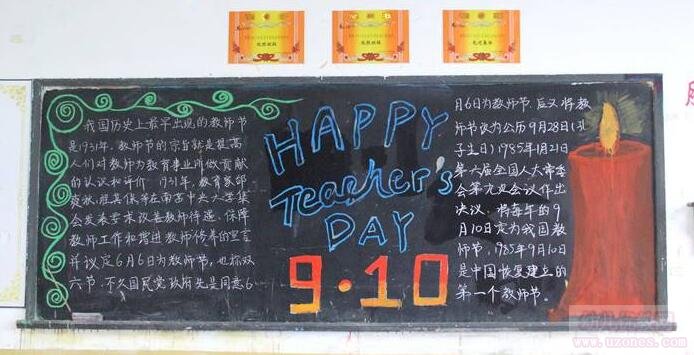 我国历史上最早出现的教师节
是1931年. 教师节的宗旨就是提高
人们对教师为教育事业所做贡献
的认识和评价. 1931年, 教育家邰
爽秋、程其保等在南京中央大学集
会发表要求改善教师待遇、保障
教师工作和增进教师修养的宣言
并议定6月6日为教师节, 也称双
六节. 不久国民党政府先是同意6
HAPPY
Teacher's
DAY
9·10
月6日为教师节, 后又将教
师节改为公历9月28日(孔
子生日) 1985年1月21日
第六届全国人大常委
会第九次会议作出
决议. 将每年的9
月10日定为我国教
师节, 1985年9月10日
是中国恢复建立的
第一个教师节.
www.uzones.com